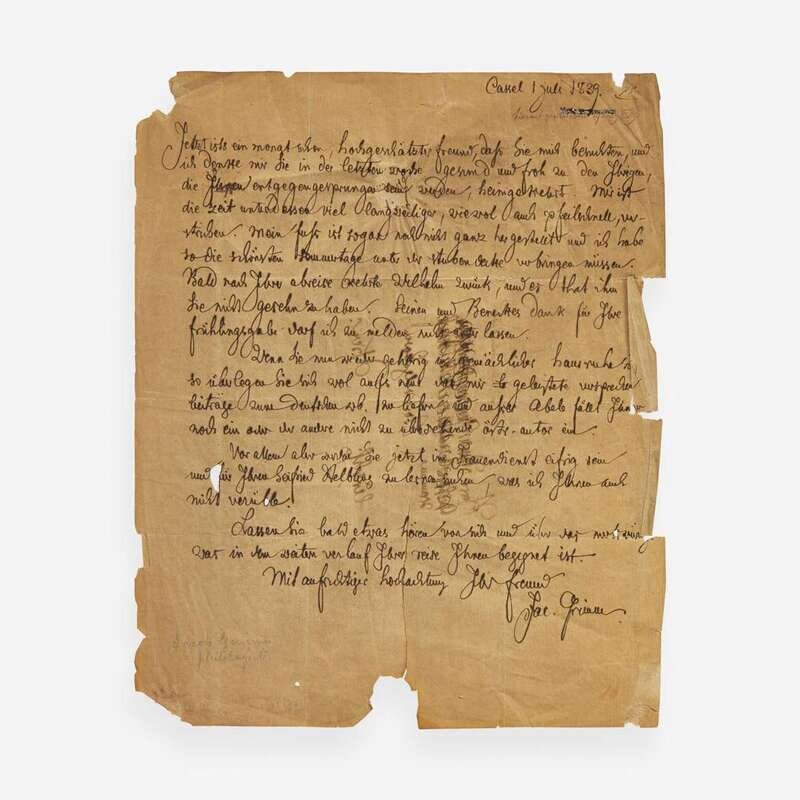 Cassel 1 juli 1839.
Jetzt ists ein monat schon, hochgeschätzter freund, daß Sie mich besuchten, und
ich denke mir Sie in der letzten woche gesund und froh zu den Ihrigen,
die Ihnen entgegengesprungen sein werden, heimgekehrt. Mir ist
die zeit unterdessen viel langweiliger, wie wol auch pfeilschnell, ver-
strichen. Mein fuß ist sogar noch nicht ganz hergestellt und ich habe
so die schönsten sommertage unter der stubendecke verbringen müssen.
Bald nach Ihrer abreise kehrte Wilhelm zurück, und es that ihm
Sie nicht gesehn zu haben. Seinen und Beneckes dank für Ihre
frühlingsgabe darf ich zu melden nicht unterlassen.
Wenn Sie nun wieder gehörig in gemächlicher hausruhe
so überlegen Sie sich wol aufs neue das mir geleistete versprechen
beiträge zum deutschen wb. zu liefern und außer Abele fällt Ihnen
noch ein oder der andere nicht zu übersehende östr. autor ein.
Vor allem aber werden Sie jetzt im frauendienst eifrig sein
und für Ihren Seifried Helbling zu lernen suchen, was ich Ihnen auch
nicht verüble.
Lassen Sie bald etwas hören von sich und
was in dem weiten verlauf Ihrer reise Ihnen begegnet ist.
Mit aufrichtiger hochachtung Ihr freund
Jac. Grimm.